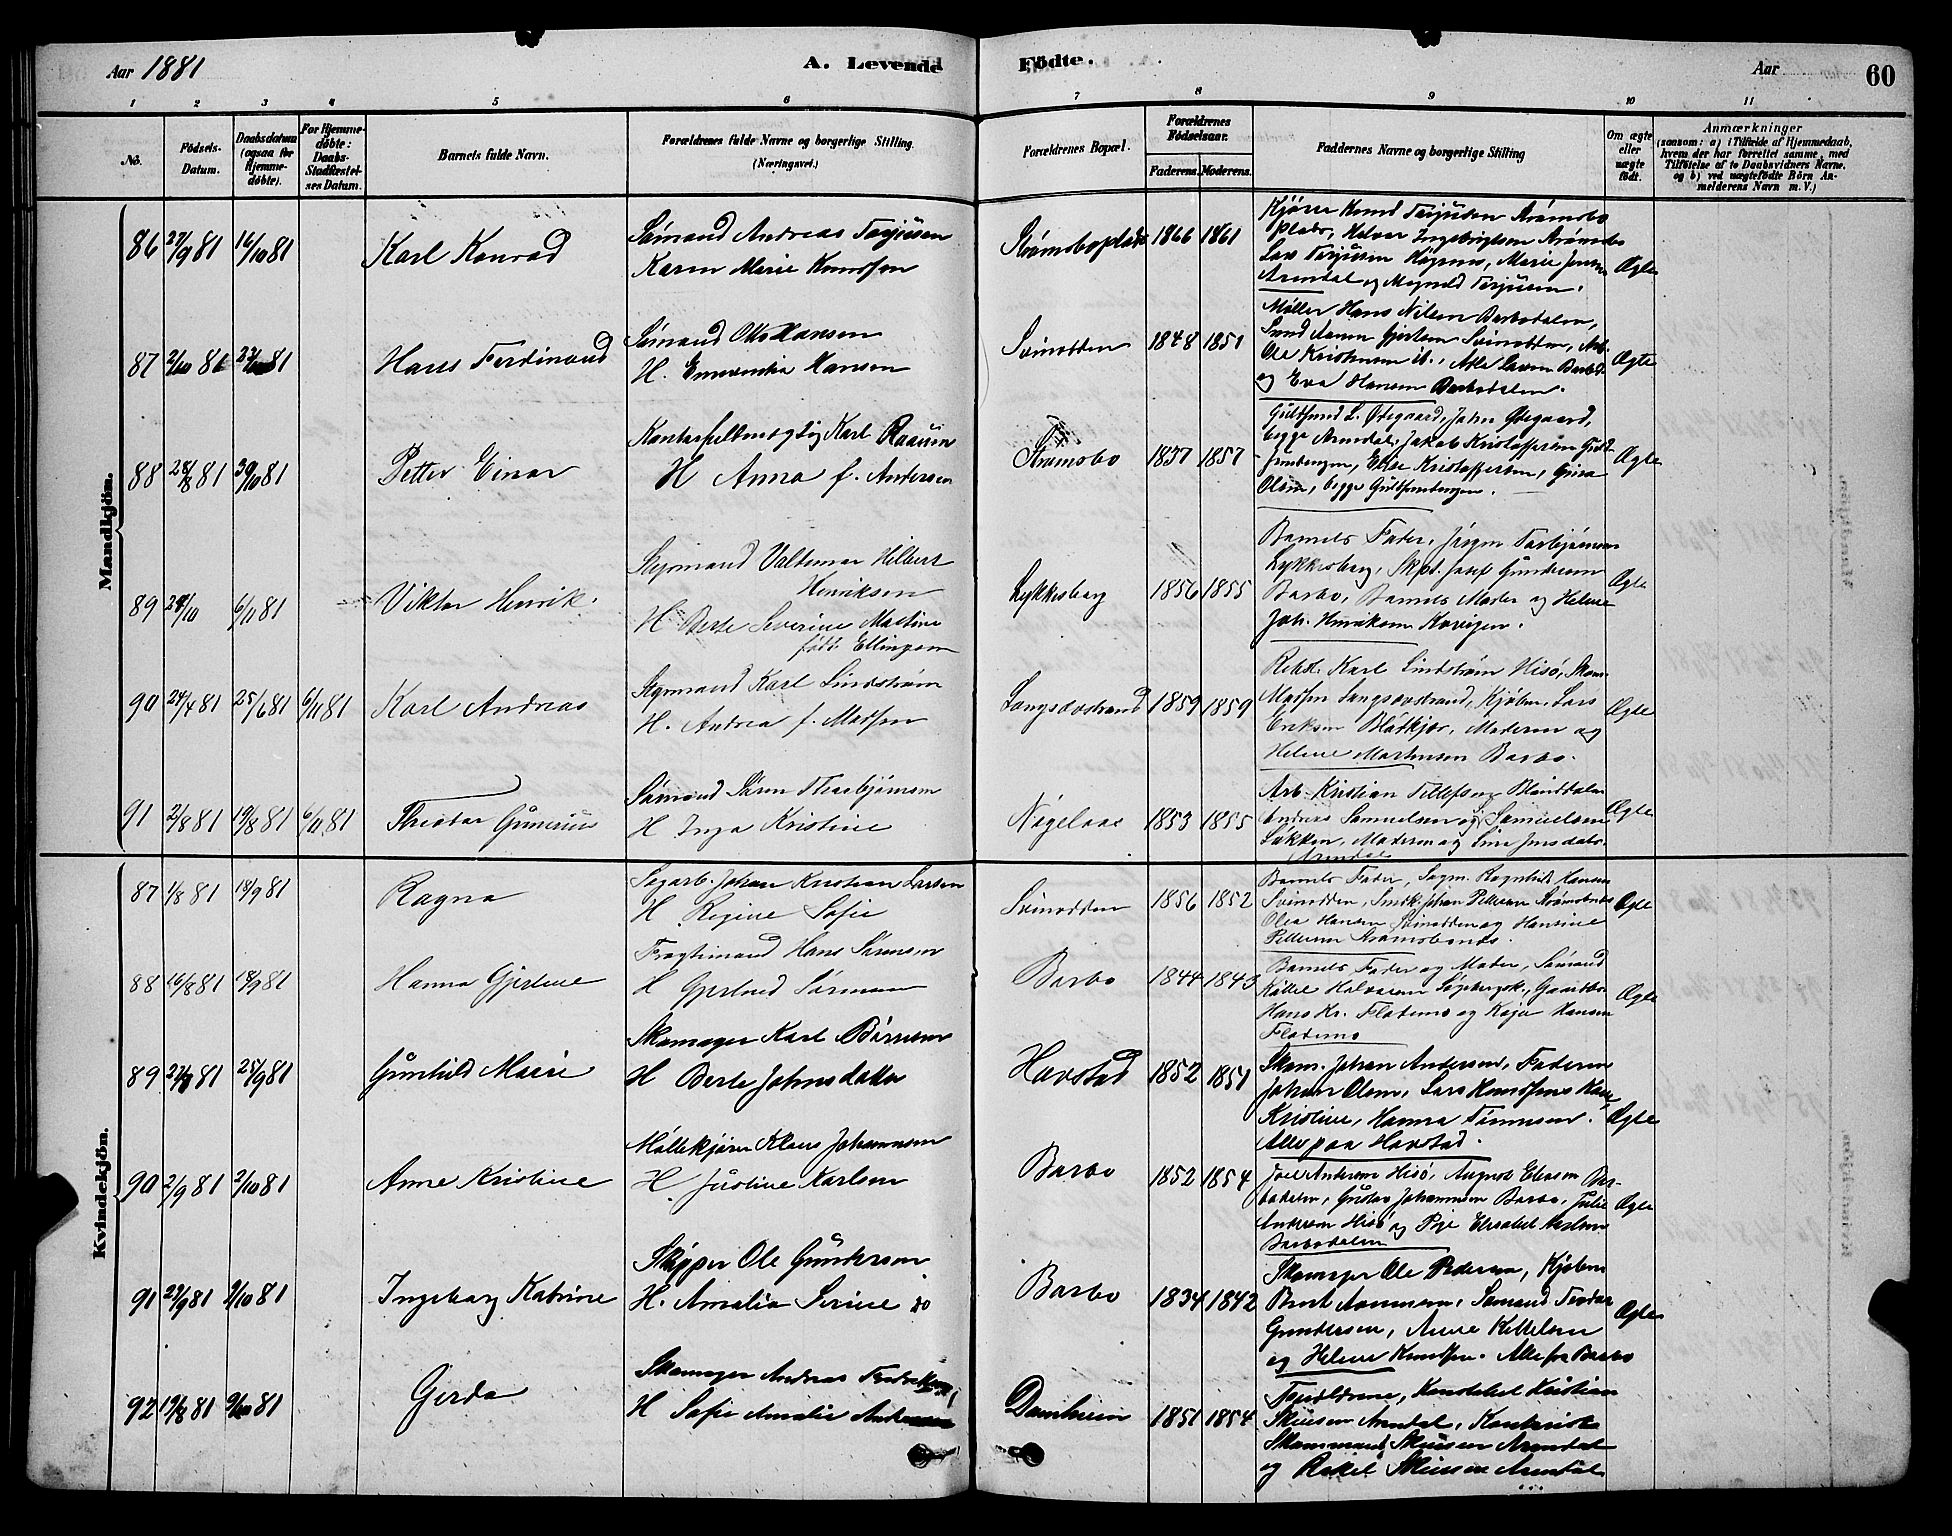 Aar 1881
A. Levende Födte.
Aar
60
1 2 3 4 5 6 7 8 9 10 11
No.
Födsels-Datum.
Daabsdatum (ogsaa for Hjemme-döbte).
For Hjemme-döbte: Daabs-Stadfæstel-ses Datum.
Barnets fulde Navn.
Forældrenes fulde Navne og borgerlige Stilling. (Næringsvei.)
Forældrenes Bopæl.
Forældrenes Födselsaar.
Faderens. Moderens.
Faddernes Navne og borgerlige Stilling
Om ægte eller uægte födt.
Anmærkninger
(saasom: a) i Tilfælde af Hjemmedaab, hvem der har forrettet samme, med Tilföielse af to Daabsvidners Navne, og b) ved uægtefödte Börn An-melderens Navn m. V.)
Mandkjön.
86 27/9 81 16/10 81 Karl Konrad
Sømand Andreas Terjusen
Karen Marie Knudsen
Strømsboplads 1866 1861
Kjører Knud Terjusen Strømsbo
plads, Halvor Ingebrigtsen Strømsbo
Lars Terjusen Høgenes, Marie Jensen
Arendal og Magnild Terjusen.
Ægte
87 2/10 81 23/10 81 Hans Ferdinand
Sømand Otto Hansen
H. Emerentia Hansen
Svinodden 1848 1851
Møller Hans Nilsen Barbodalen,
Svinodden, Arb.
Ole Kristensen
og Eva Hansen Barbodalen.
Ægte
88 28/8 81 30/10 81 Petter Einar
Kontorfuldmægtig Karl Raaum
H Anna f. Andersen
Strømsbo 1857 1857
Guldsmed L. Ødegaard, John Ødegaard,
begge Arendal, Jakob Kristoffersen Guld-
smedengen, Else Kristoffersen, Gina
Olsen, begge Guldsmedengen.
Ægte
89 29/10 6/11 81 Viktor Henrik.
Styrmand Valdemar Hilbert
Henriksen
H Berte Severine Mastine
født Ellingsen
Lykkesborg 1856 1855
Barnets Fader, Jørgen Torbjørnsen
Lykkesborg, Skpd. Josef Gundersen
Barbo, Barnets Moder og Helene
Joh. Henriksen Kovigen.
Ægte
90 24/4 81 25/6 81 6/11 81 Karl Andreas
Styrmand Karl Lindstrøm
H. Andrea f. Madsen
Langsævstrand 1859 1859
Karl Lindstrøm Hisø, Skom.
Madsen Langsævstrand, Kjøbm. Lars
Eriksen Blødkjær, Moderen og
Helene Mortensen Barbo.
Ægte
91 2/8 81 19/8 81 6/11 81 Theodor Gunerius
Sømand Søren Thorbjørnsen
H Inga Kristine
Nøgelaas 1853 1855
Arb. Kristian Tellefsen
Andreas Samuelsen og Samuelsen
Løkken, Moderen og
Arendal
Ægte
Kvindekjön.
87 1/8 81 18/9 81 Ragna
Sagarb. Johan Kristian Larsen
H Regine Sofie
Svinodden 1856 1852
Barnets Fader, Sagm. Regnhild Hansen
Svinodden, Smdk. Johan Pettersen Strømsbonds
Olea Hansen Svinodden og Hansine
Pettersen Strømsbonds.
Ægte
88 16/8 81 18/9 81 Hanna Gjerline
Fragtemand Hans Sørensen
H Gjertrud Sørensen
Barbo 1844 1843
Barnets Fader og Moder, Sømand
Kittel Halvorsen
Hans Kr. Flademo og Kaja Hansen
Flademo
Ægte
89 27/8 81 25/9 81 Gunhild Marie
Skomager Karl Børresen
H Berte Johnsdatter
Havstad 1852 1851
Skom. Johan Andersen, Faderen
Johan Olsen, Lars Knudsens Kone
Kristine, Hanna Tønnesen.
Alle paa Havstad.
Ægte
90 2/9 81 2/10 81 Anne Kristine
Møllekjører Klaus Johannesen
H. Justine Karlsen
Barbo 1852 1854
Joel Andersen Hisø, August Ellersen Bar-
bodalen, Gustav Johannesen Barbo, Julie
Andersen Hisø og Pige Elisabet
Barbodalen
Ægte
91 29/9 81 9/10 81 Ingeborg Katrine
Skipper Ole Gundersen
H. Amalia Serine do
Barbo 1834 1842
Skomager Ole Pedersen, Kjøbm
Bent Aanensen, Sømand Teodor
Gundersen, Anne Kittelsen
og Helene Knudsen. Alle fra Barbo
Ægte
92 19/8 81 9/10 81 Gerda
Skomager Andreas Fredriksen
H Sofie Amalie
Damheien 1851 1854
Forældrene, Konstabel Kristian
Skuesen Arendal, Kontorist
Skuesen Arendal
og Rakel Skuesen Arendal